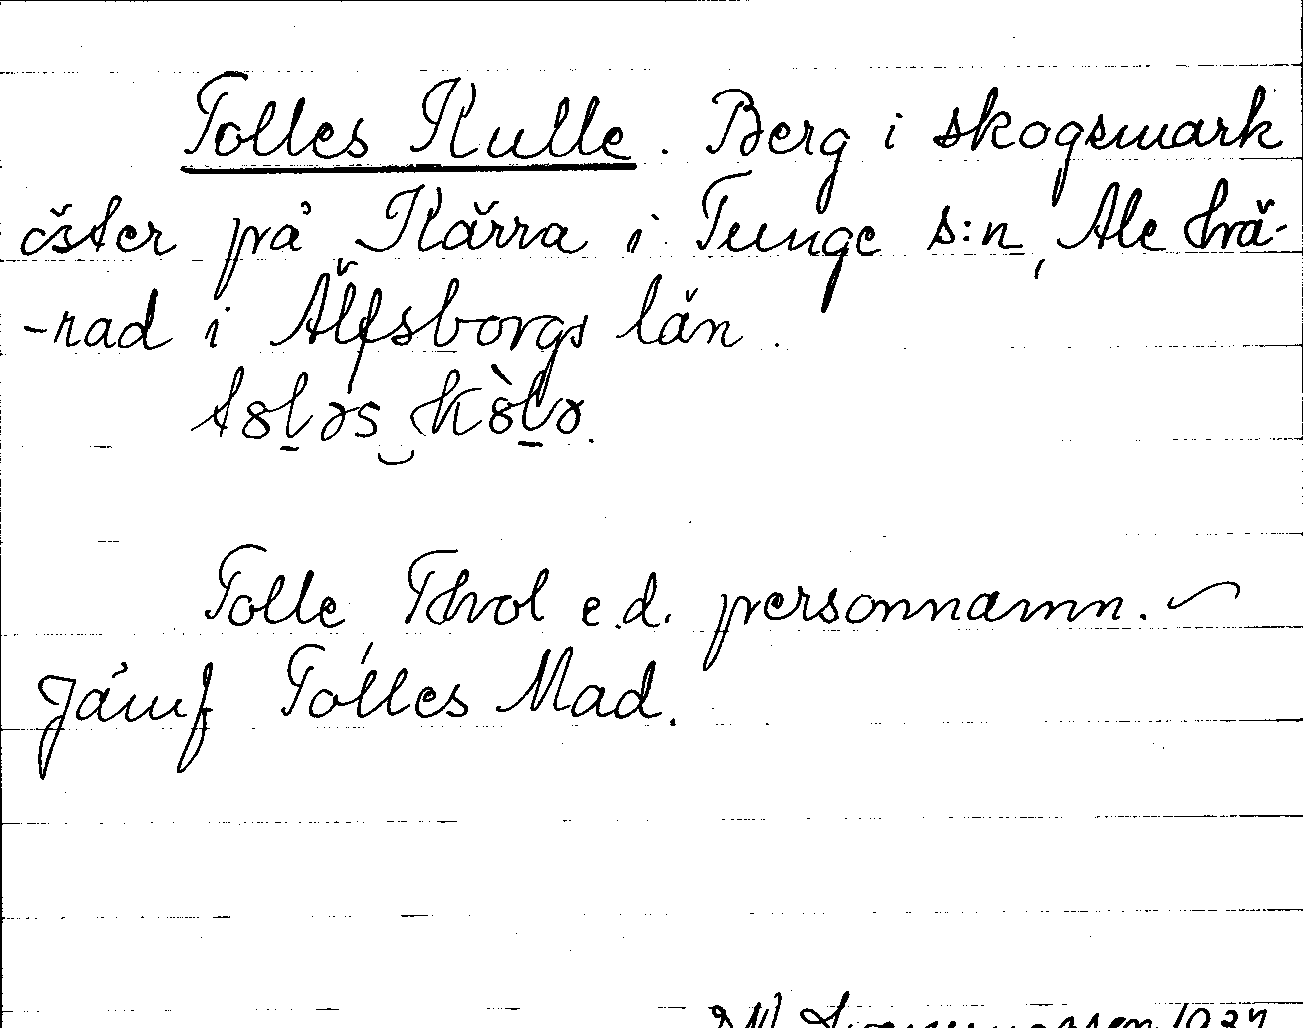 Tolles Kulle. Berg i skogsmark
öster på Kärra i Tunge s:n, Ale hä-
-rad i Älfsborgs län.
Tolle, Thol e.d. personnamn.
Jämf Tolles Mad.